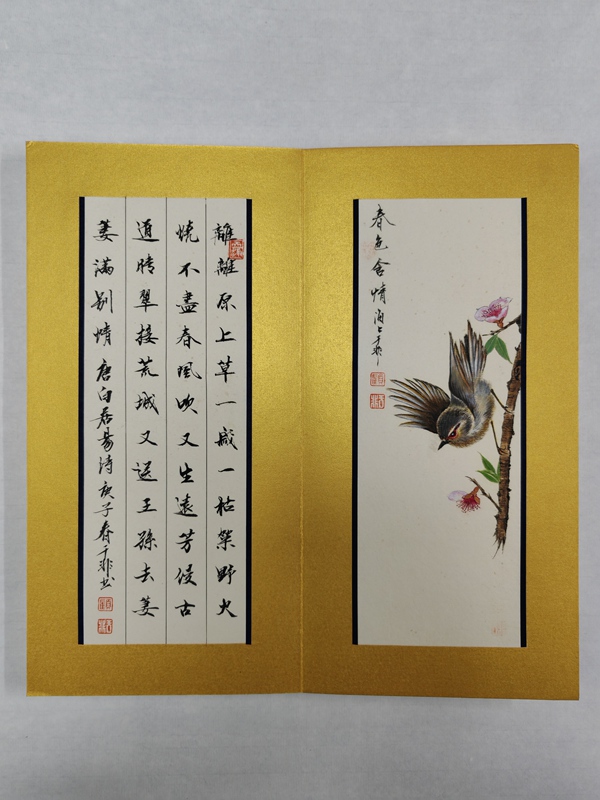 離離原上草一歲一枯榮野火
燒不盡春風吹又生遠芳侵古
道晴翠接荒城又送王孫去萋
萋滿別情 唐白居易詩 庚子春 千非书
春色含情 海上千非